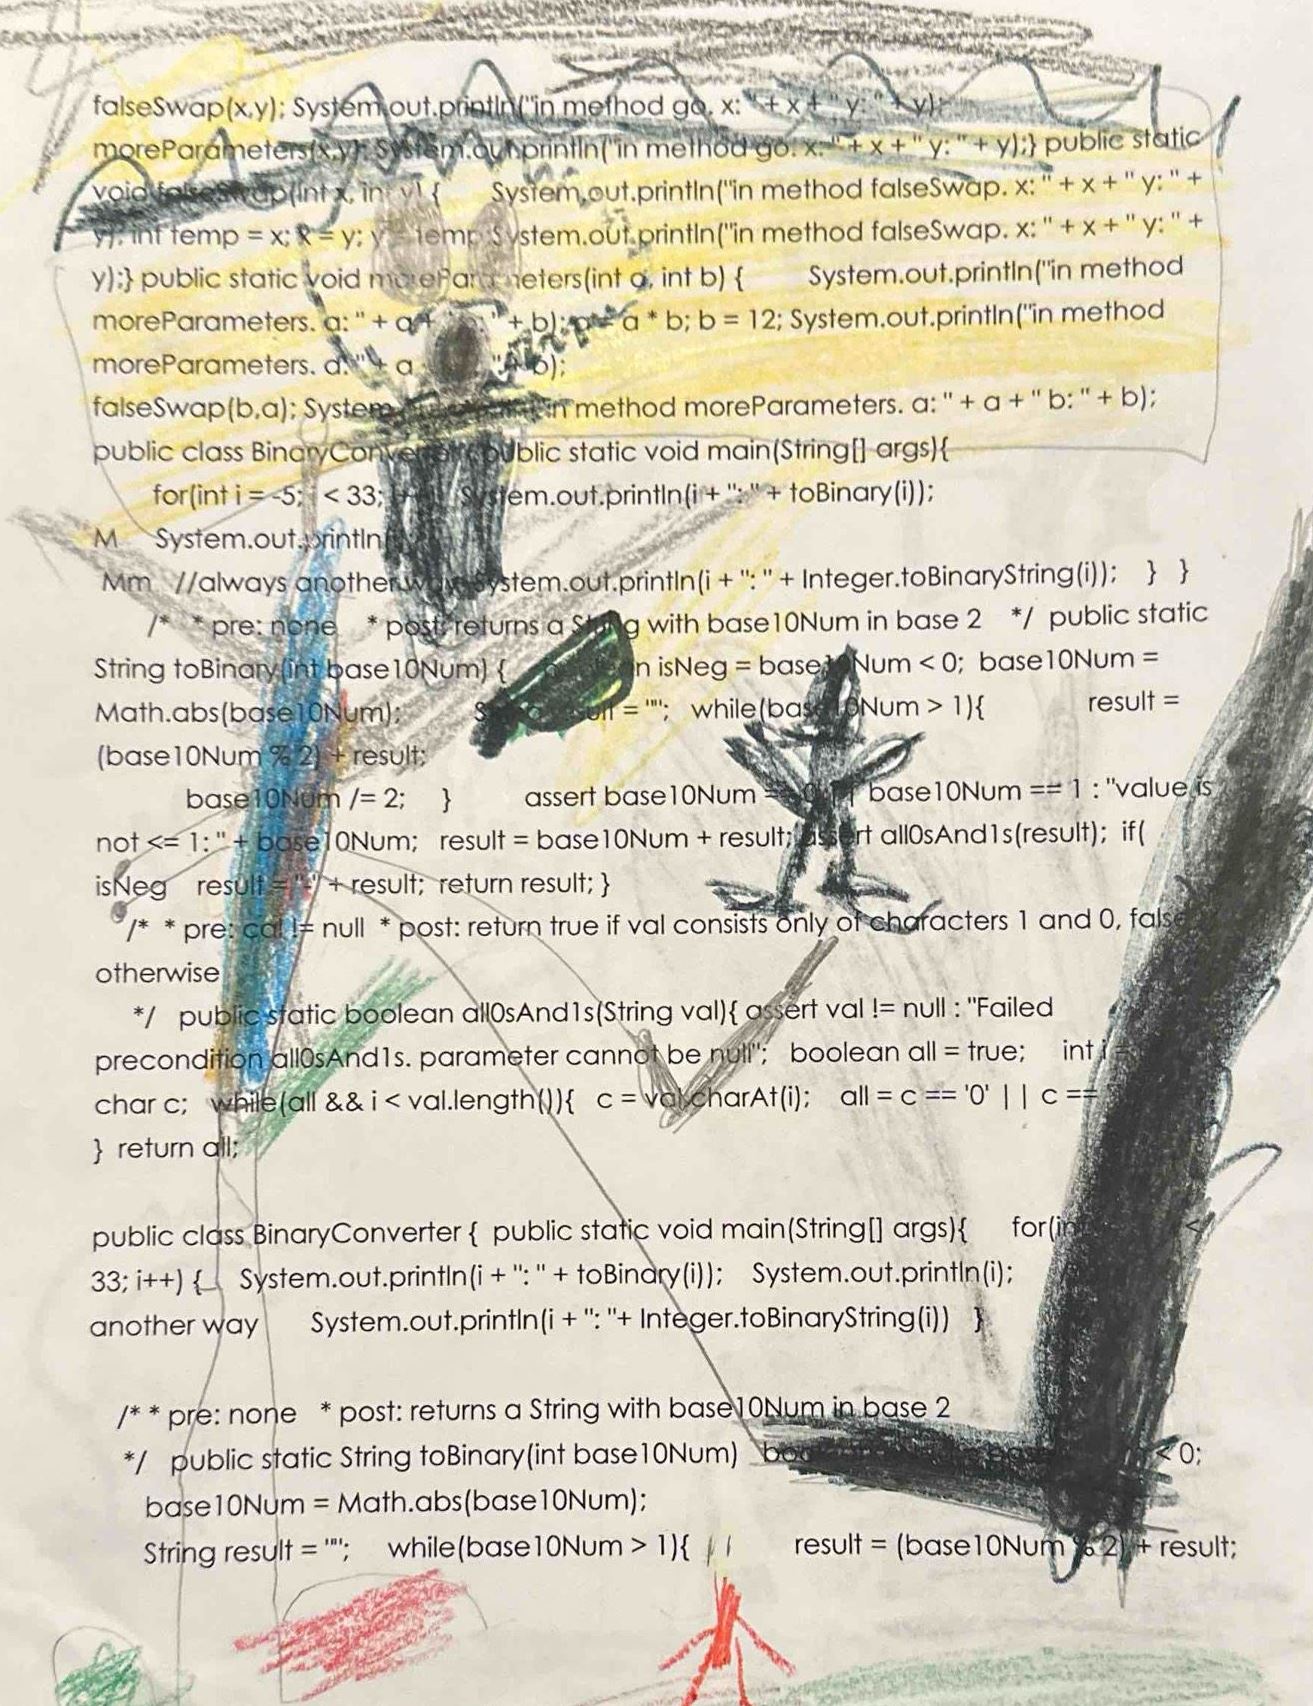 falseSwap(x,y); System.out.println("in method go. x: " + x + " y: " + y);
moreParameters(x,y); System.out.println("in method go. x: " + x + " y: " + y);} public static
void falseSwap(int x, int y) { System.out.println("in method falseSwap. x: " + x + " y: " +
y); int temp = x; x = y; y = temp; System.out.println("in method falseSwap. x: " + x + " y: " +
y);} public static void moreParameters(int a, int b) { System.out.println("in method
moreParameters. a: " + a + " + b); a * b; b = 12; System.out.println("in method
moreParameters. a: " + a b);
falseSwap(b,a); System in method moreParameters. a: " + a + " b: " + b);
public class BinaryConverter public static void main(String[] args){
for(int i = -5; i < 33; System.out.println(i + ": " + toBinary(i));
M System.out.println
Mm //always another System.out.println(i + ": " + Integer.toBinaryString(i)); } }
/* * pre: none * post: returns a String with base10Num in base 2 */ public static
String toBinary(int base10Num) { isNeg = base10Num < 0; base10Num =
Math.abs(base10Num); = ""; while(base10Num > 1){ result =
(base10Num % 2) + result;
base10Num /= 2; } assert base10Num base10Num == 1 : "value is
not <= 1: " + base10Num; result = base10Num + result; assert all0sAnd1s(result); if(
isNeg result = "-" + result; return result; }
/* * pre: cal != null * post: return true if val consists only of characters 1 and 0, false
otherwise
*/ public static boolean all0sAnd1s(String val){ assert val != null : "Failed
precondition all0sAnd1s. parameter cannot be null"; boolean all = true; int i =
char c; while(all && i < val.length()){ c = val.charAt(i); all = c == '0' || c ==
} return all;
public class BinaryConverter { public static void main(String[] args){ for(int <
33; i++) { System.out.println(i + ": " + toBinary(i)); System.out.println(i);
another way System.out.println(i + ": "+ Integer.toBinaryString(i)) }
/* * pre: none * post: returns a String with base10Num in base 2
*/ public static String toBinary(int base10Num) < 0;
base10Num = Math.abs(base10Num);
String result = ""; while(base10Num > 1){ result = (base10Num % 2) + result;